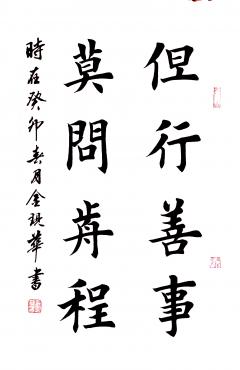 但行善事
莫問前程
時在癸卯春月金琪華書